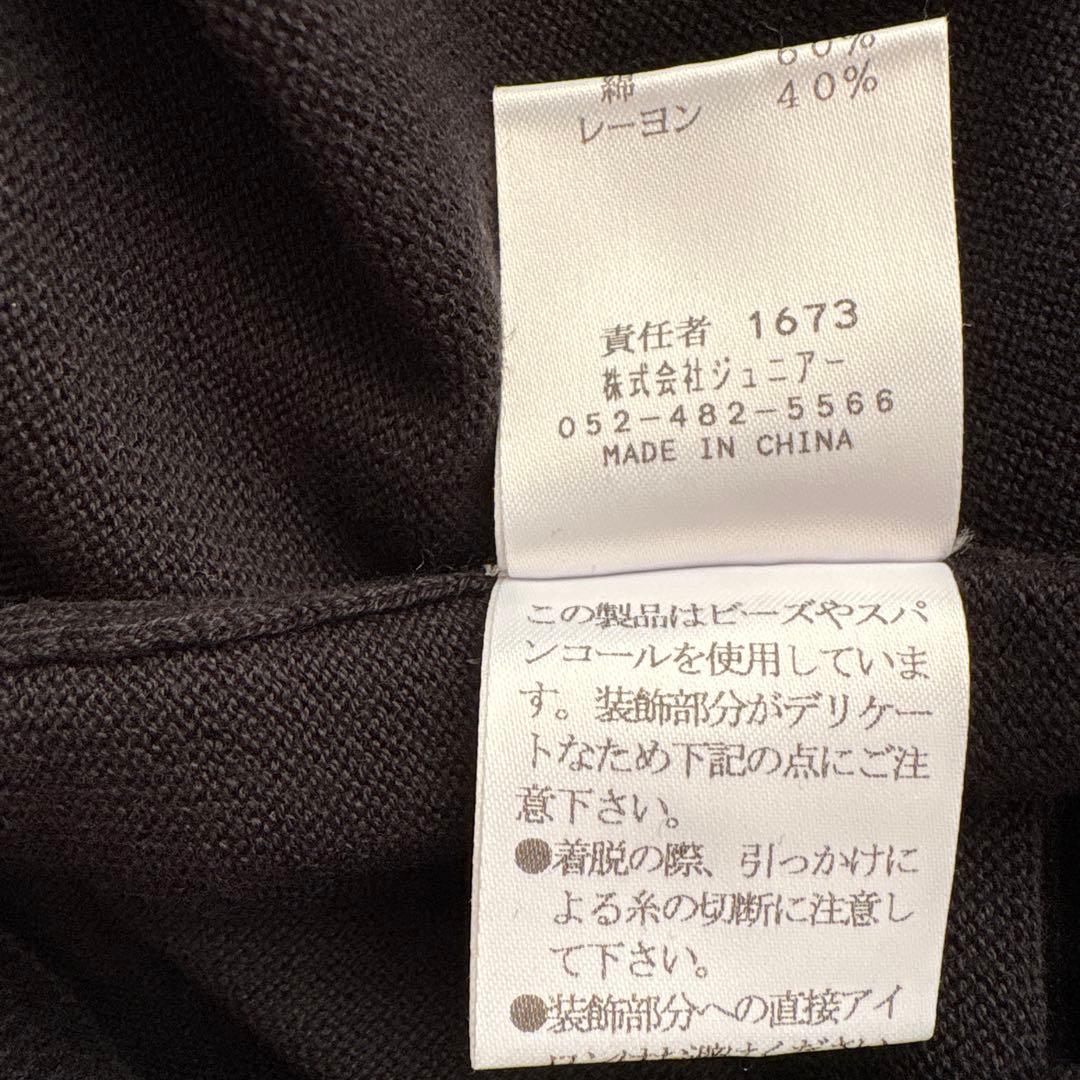 綿 60%
レーヨン 40%
責任者 1673
株式会社ジュニアー
052-482-5566
MADE IN CHINA
この製品はビーズやスパ
ンコールを使用していま
す。装飾部分がデリケー
トなため下記の点にご注
意下さい。
●着脱の際、引っかけに
よる糸の切断に注意し
て下さい。
●装飾部分への直接アイ
ロンはお避けください